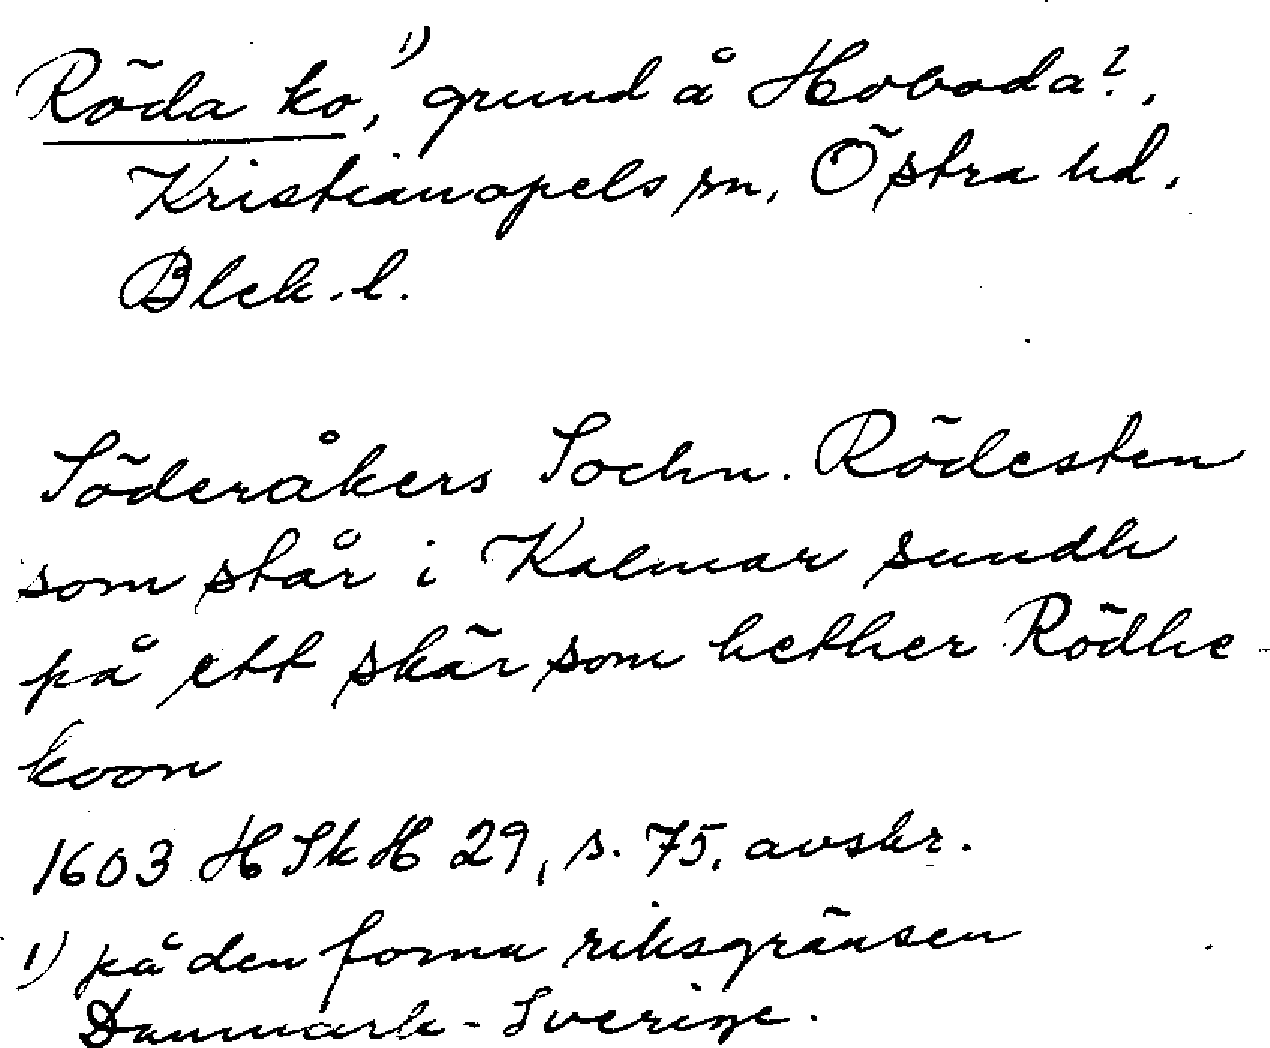 Röda ko,¹⁾ grund å Hoboda?,
Kristianopels sn, Östra hd,
Blek. l.
Söderåkers Sochn. Rödesten
som står i Kalmar sundh
på ett skär som hether Rödhe
koon
1603 HSkH 29, s. 75, avskr.
1) på den forna riksgränsen
Danmark-Sverige.